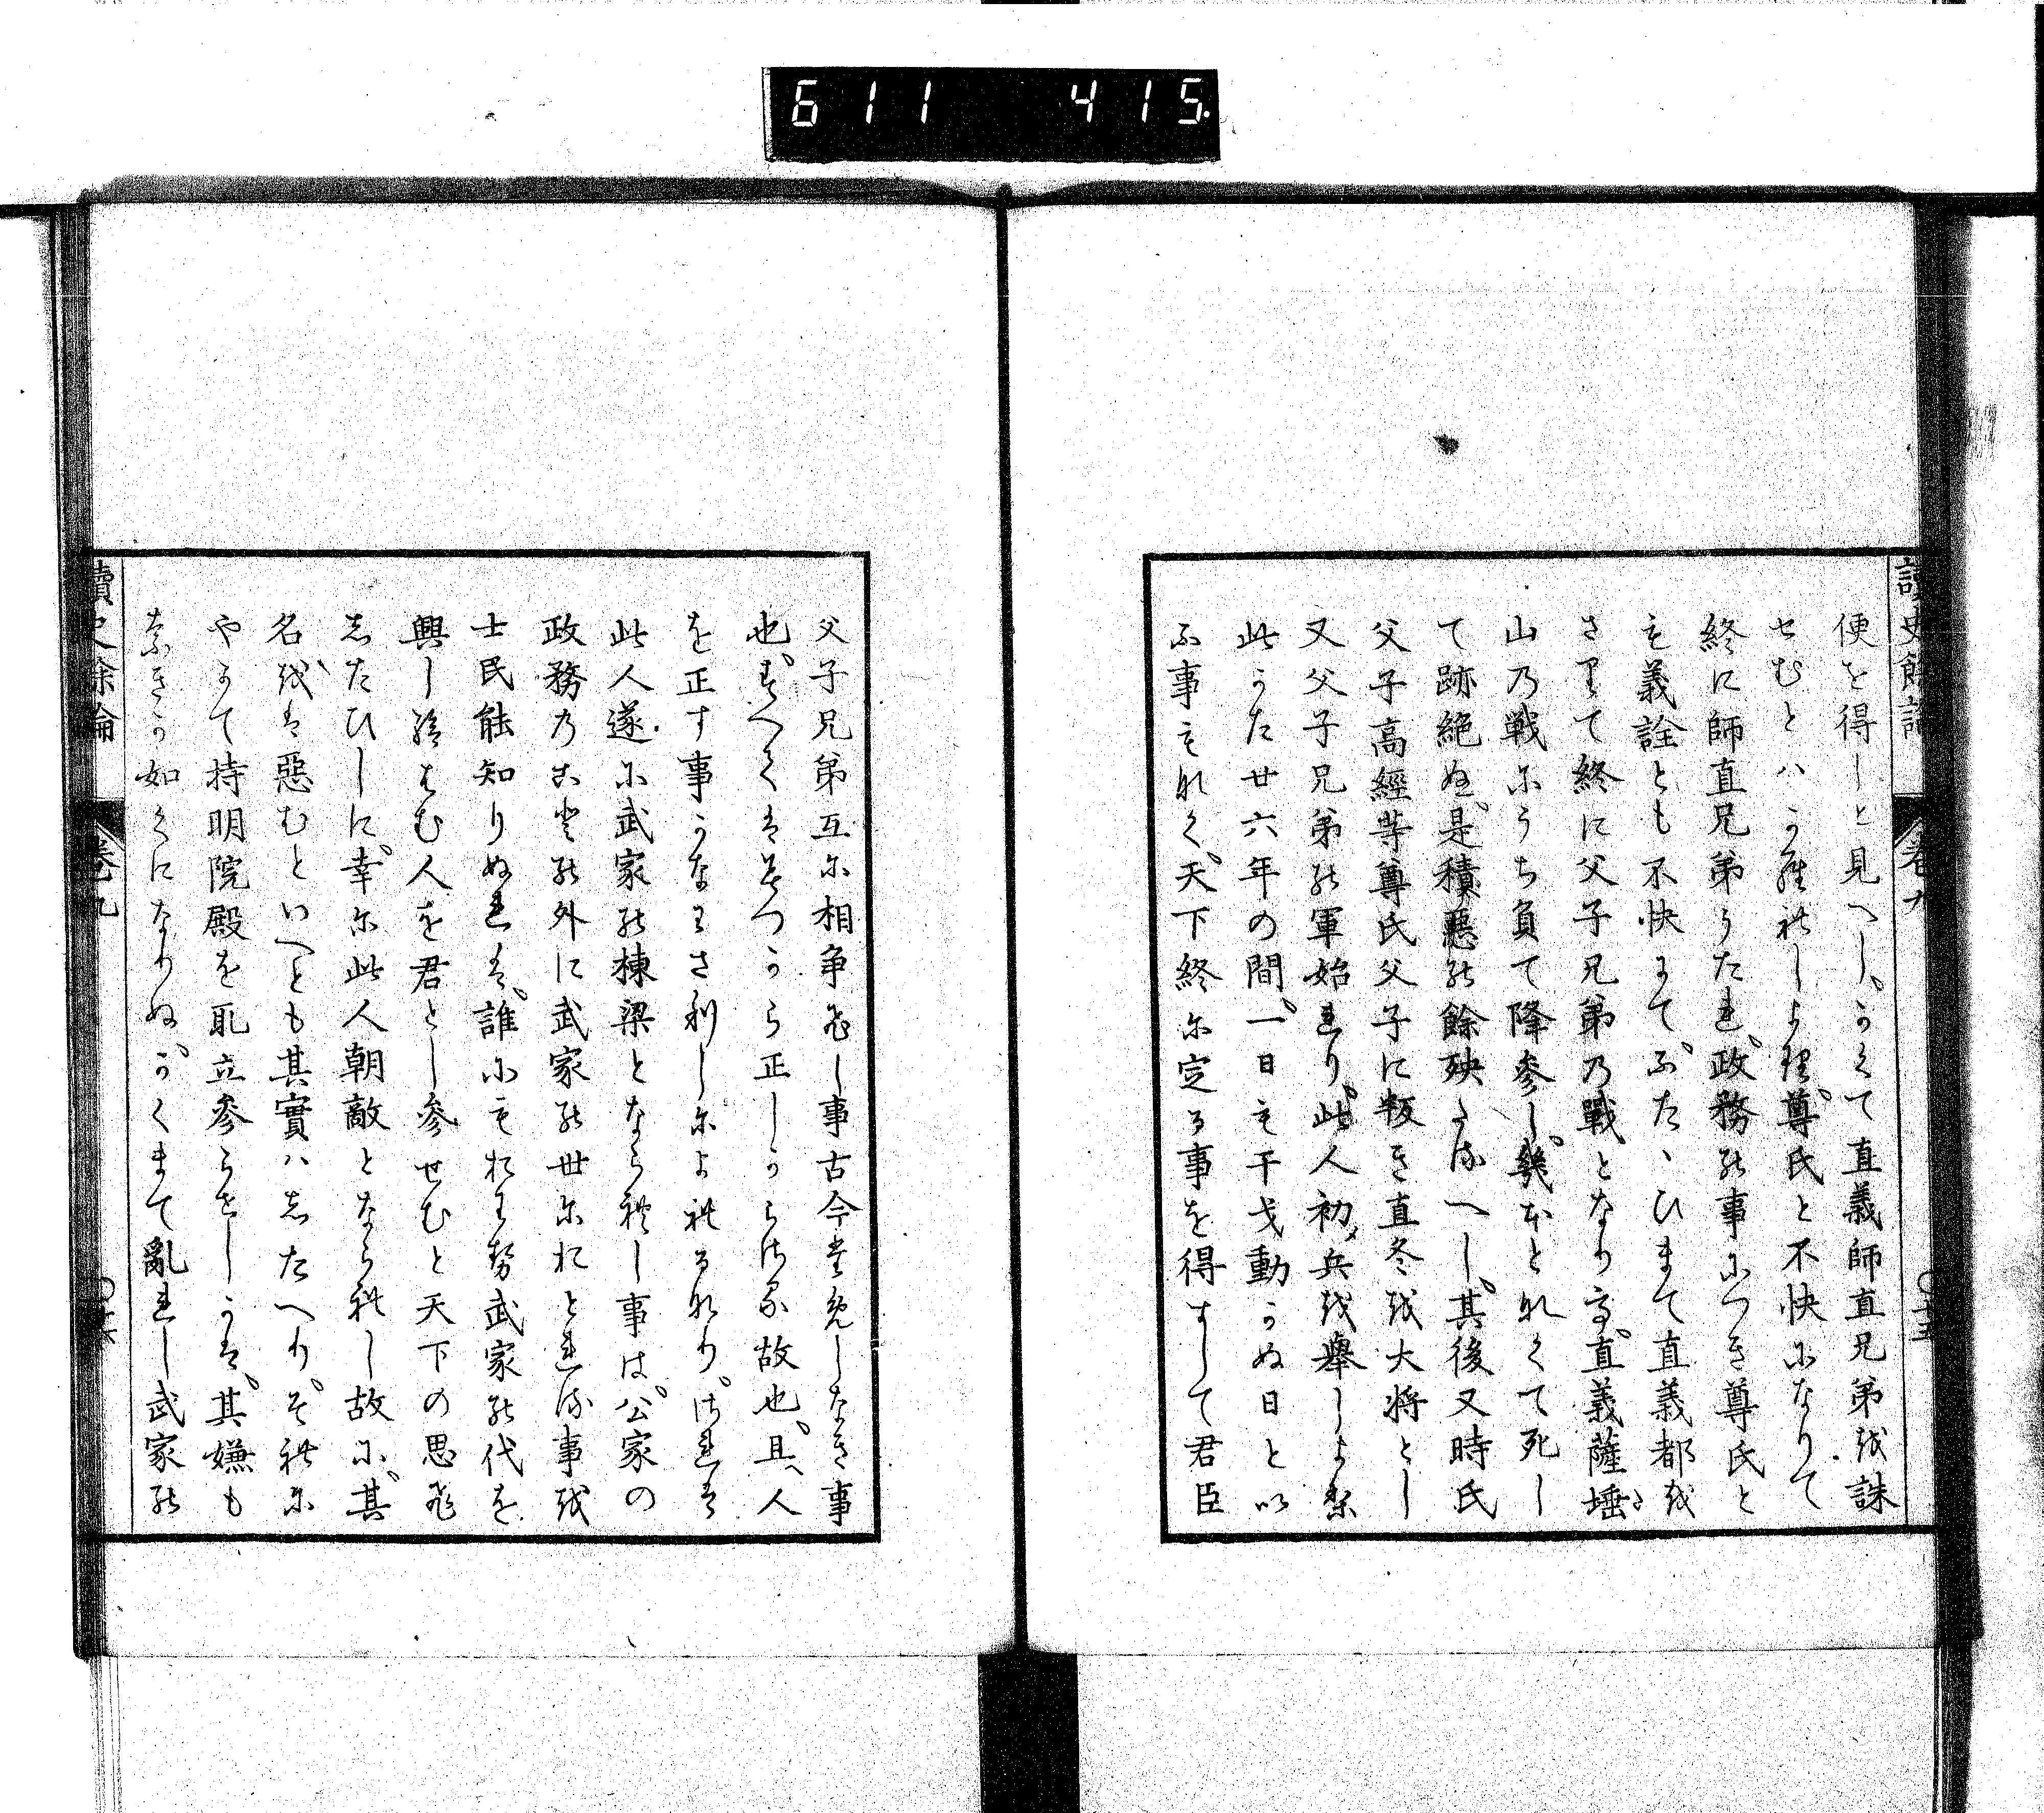 611 415
讀史餘論 卷九 〇十五
便を得しと見へしかくて直義師直兄弟を誅
せむとはかられしより尊氏と不快になりて
終に師直兄弟うたれ政務の事につき尊氏と
も義詮とも不快にてふたゝひまて直義都を
さりて終に父子兄弟の戦となり直義薩埵
山の戦にうち負て降参し幾ほとなくて死し
て跡絶ぬ是積悪の餘殃なるへし其後又時氏
父子高經等尊氏父子に叛き直冬を大将とし
又父子兄弟の軍始れり此人初兵を舉しより
此かた廿六年の間一日も干戈動かぬ日とい
ふ事もなく天下終に定る事を得すして君臣
父子兄弟互に相争ひし事古今ためしなき事
也すへてはみつから正しからさる故也且人
を正す事かなはさりしによれるなりされは
此人遂に武家の棟梁となられし事は公家の
政務のことの外に武家の世におとれる事を
士民能知りぬれは誰にもおはせ武家の代を
興し給はむ人を君とし参せむと天下の思ひ
したひしに幸に此人朝敵となられし故に其
名をは惡むといへとも其實はしたへりそれに
やかて持明院殿を取立参らせしかは其嫌も
なきか如くになりぬかくまて亂れし武家の
讀史餘論 卷九 〇十六